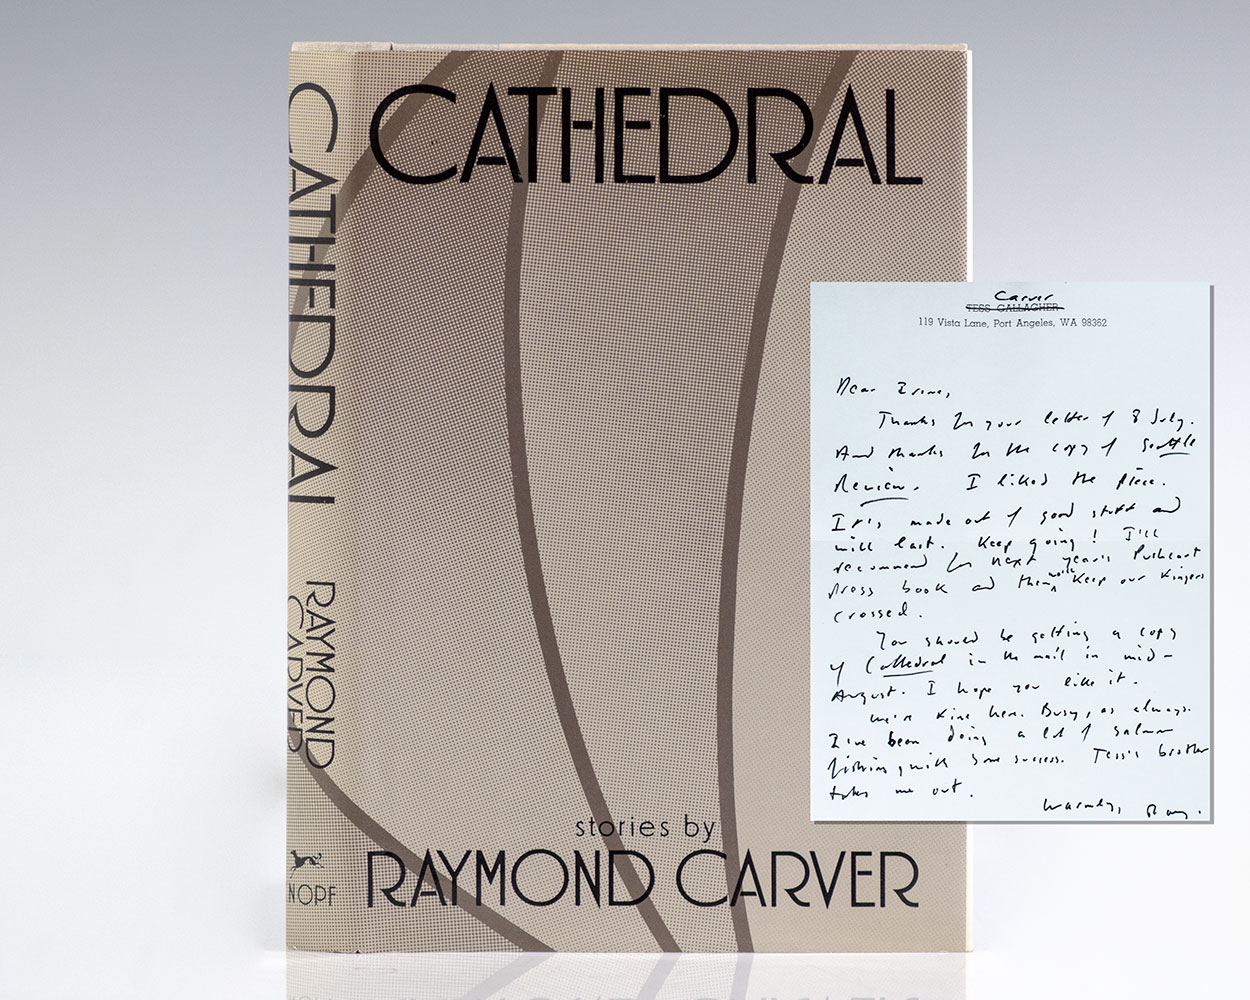 CATHEDRAL
stories by
RAYMOND CARVER
CATHEDRAL
RAYMOND
CARVER
KNOPF
Carver
TESS GALLAGHER
119 Vista Lane, Port Angeles, WA 98362
Dear Irene,
Thanks for your letter of 8 July.
And thanks for the copy of Seattle
Review. I liked the piece.
It's made out of good stuff and
will last. Keep going! I'll
recommend for next year's Pushcart
Press book and then will keep our fingers
crossed.
You should be getting a copy
of Cathedral in the mail in mid-
August. I hope you like it.
We're fine here. Busy, as always.
I've been doing a lot of salmon
fishing, with some success. Tess's brother
takes me out.
Warmly, Ray.